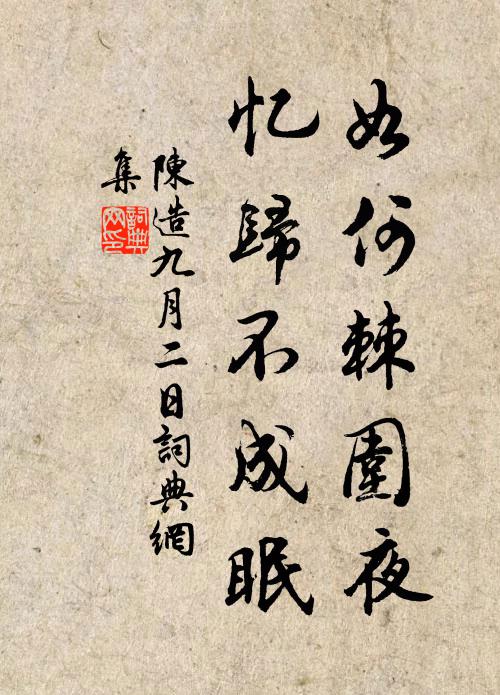 如何棘圍夜
忆歸不成眠
陳造九月二日詞典網
集
詞典
网印